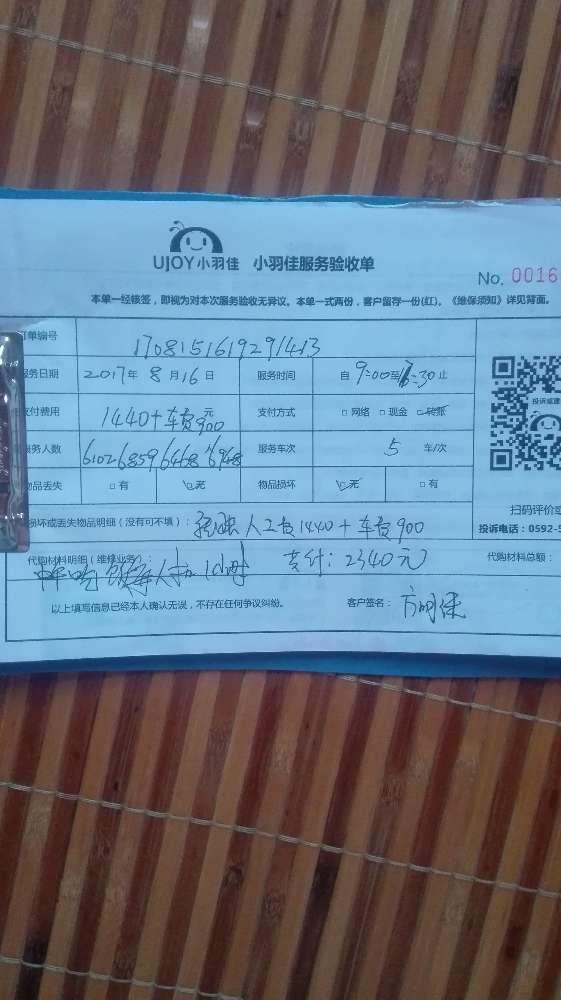 UJOY小羽佳 小羽佳服务验收单
No. 0016
本单一经核签，即视为对本次服务验收无异议。本单一式两份，客户留存一份(红)。《维保须知》详见背面。
订单编号 1708151619291413
服务日期 2017年8月16日 服务时间 自9:00至 :30止
支付费用 1440+车费900元 支付方式 □网络 □现金 □转账
服务人数 6102 6859 6468 6948 服务车次 5 车/次
物品丢失 □有 □无 物品损坏 □无 □有
扫码评价或
损坏或丢失物品明细（没有可不填）： 人工费1440+车费900
投诉电话：0592-5
代购材料明细（维修业务）： 共计：2340元 代购材料总额：
以上填写信息已经本人确认无误，不存在任何争议纠纷。 客户签名：方明